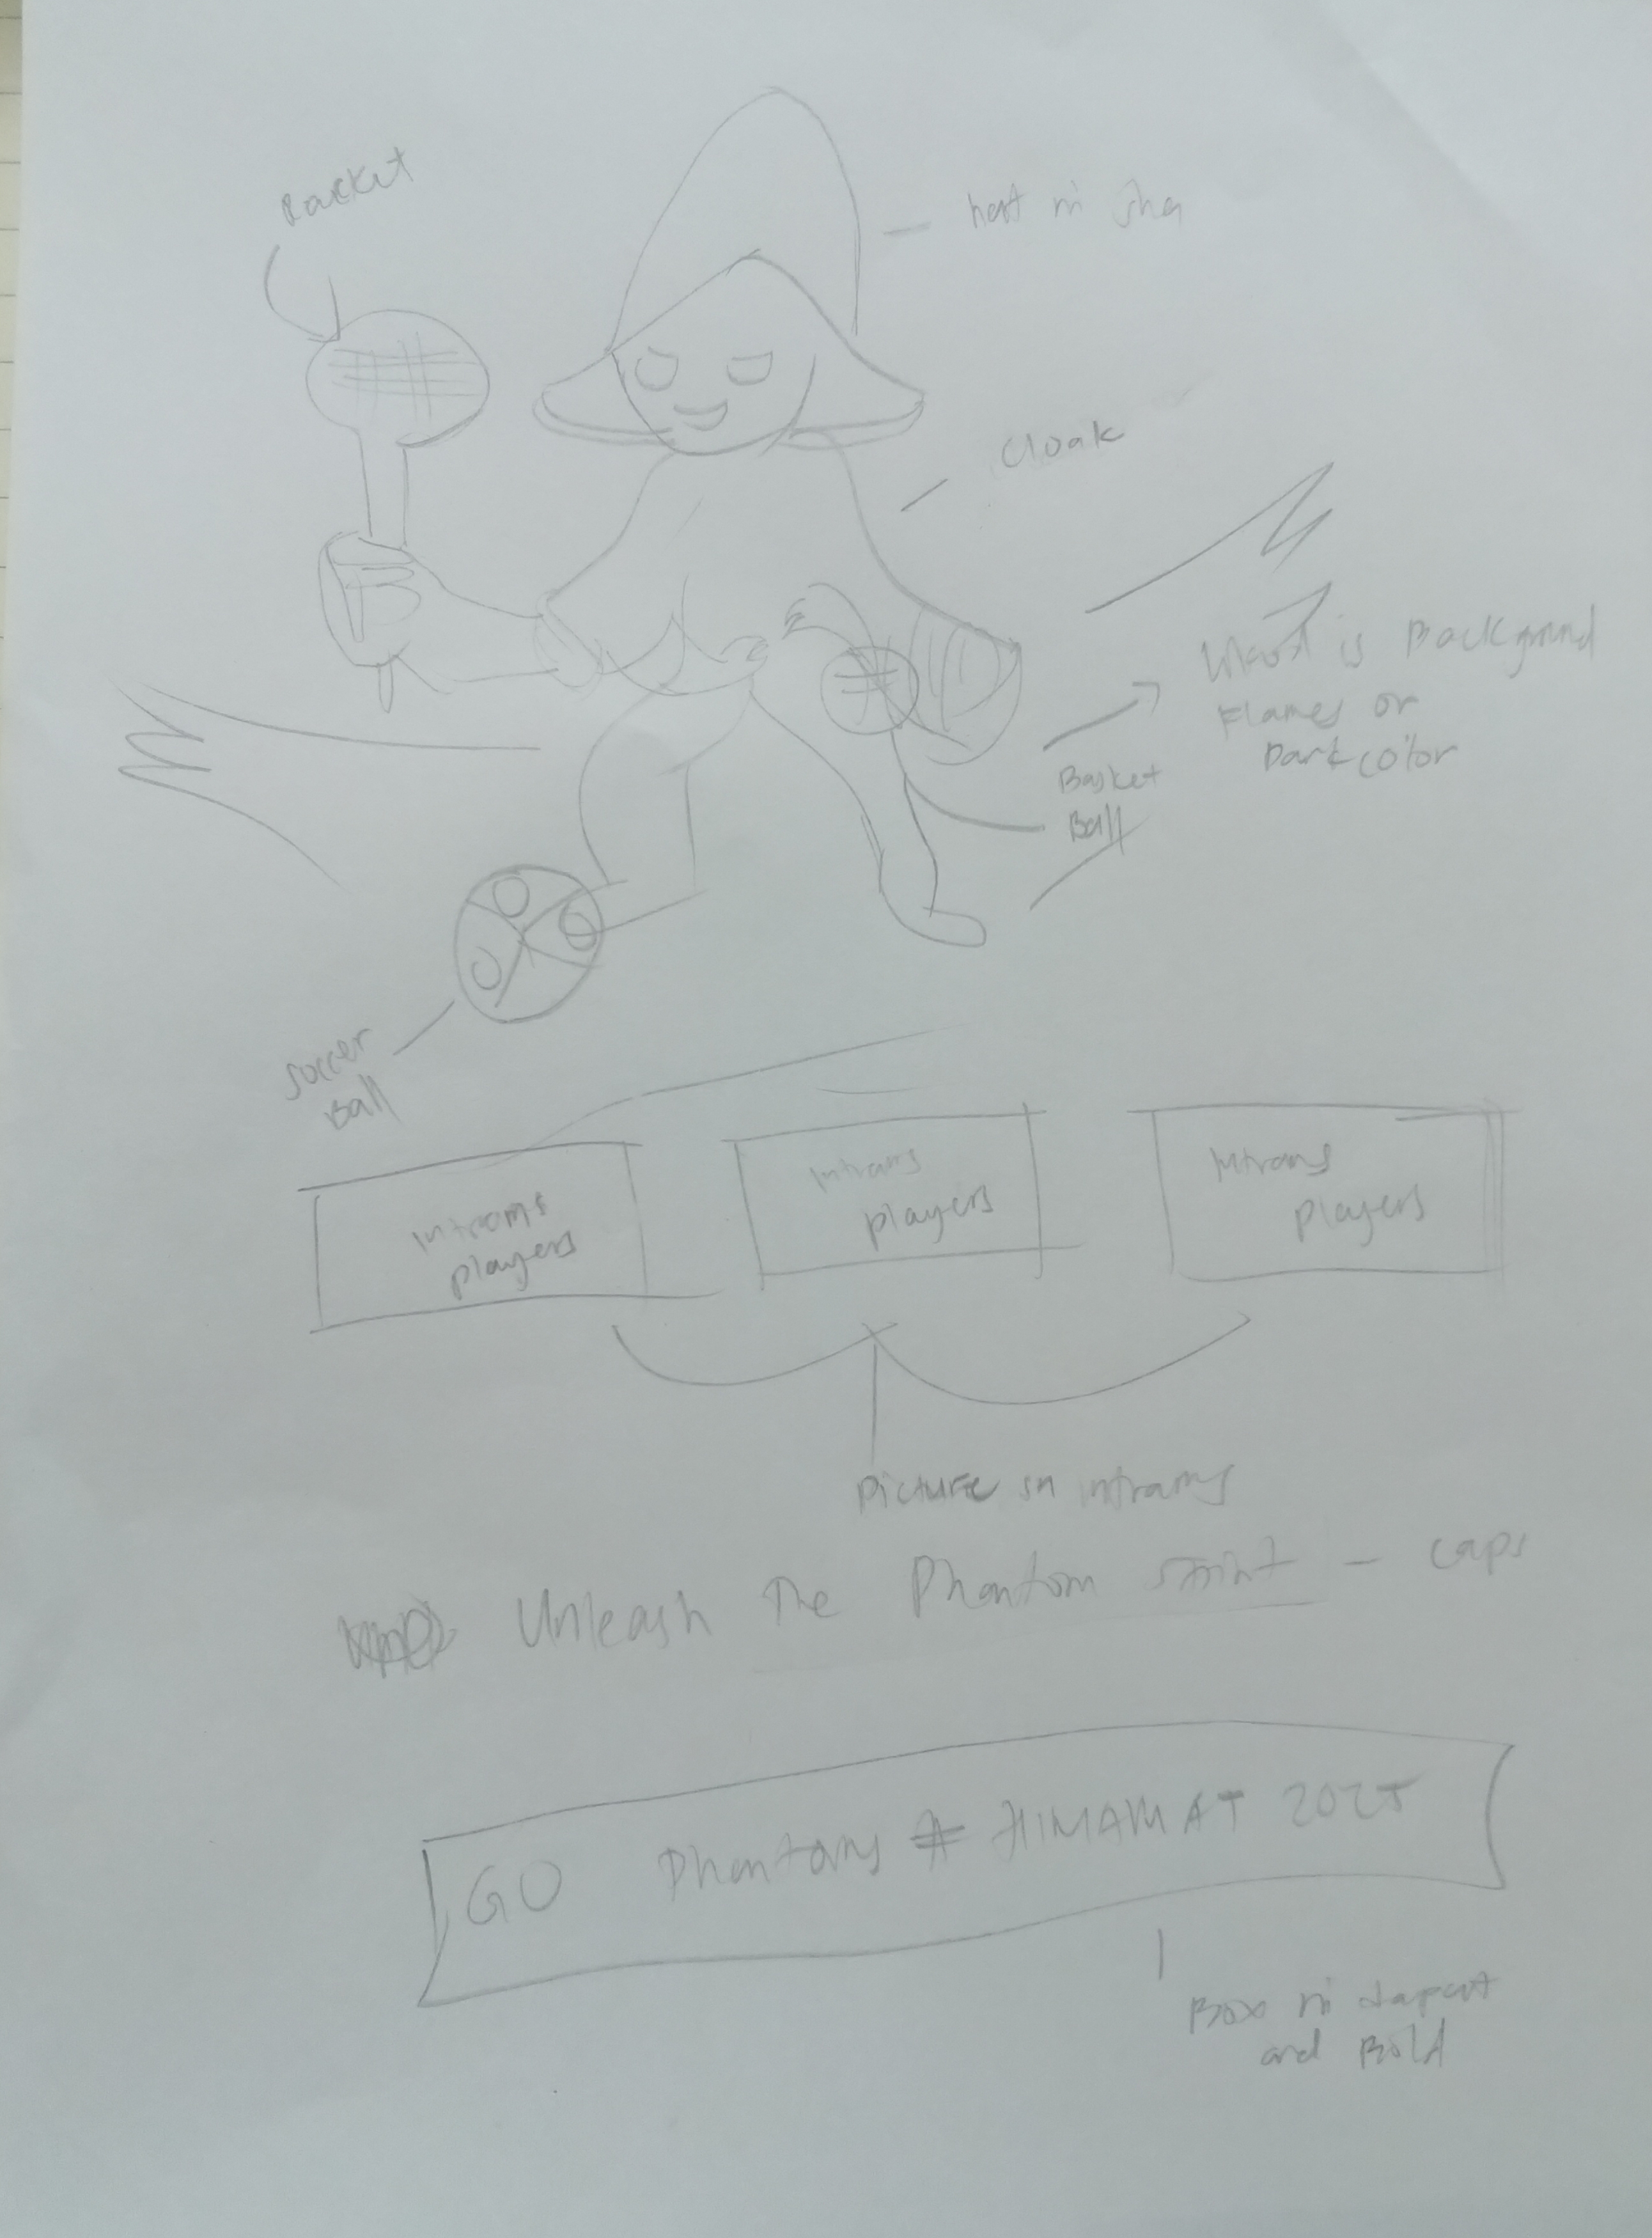 Racket
hat ni sha
Cloak
is Background
Flames or
Dark color
Basket
Ball
Soccer
Ball
Intrams
players
Intrams
players
Intrams
players
Picture sn intrams
Unleash The Phantom - caps
GO Phantoms # HIMAMAT 2025
Box ni dapat
and Bold